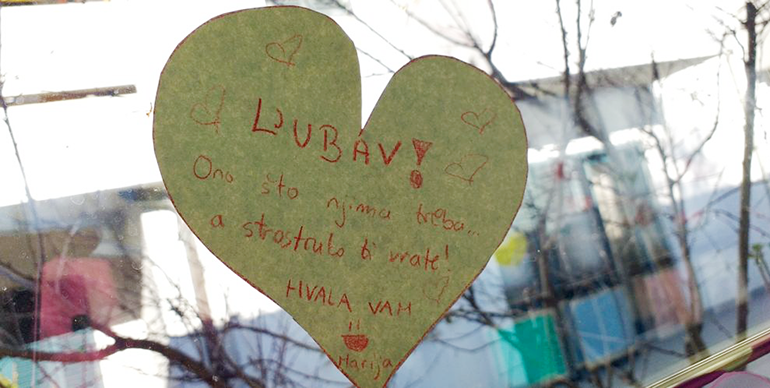 LJUBAV!
Ono što njima treba...
a strostruko ti vrate!
HVALA VAM
Marija